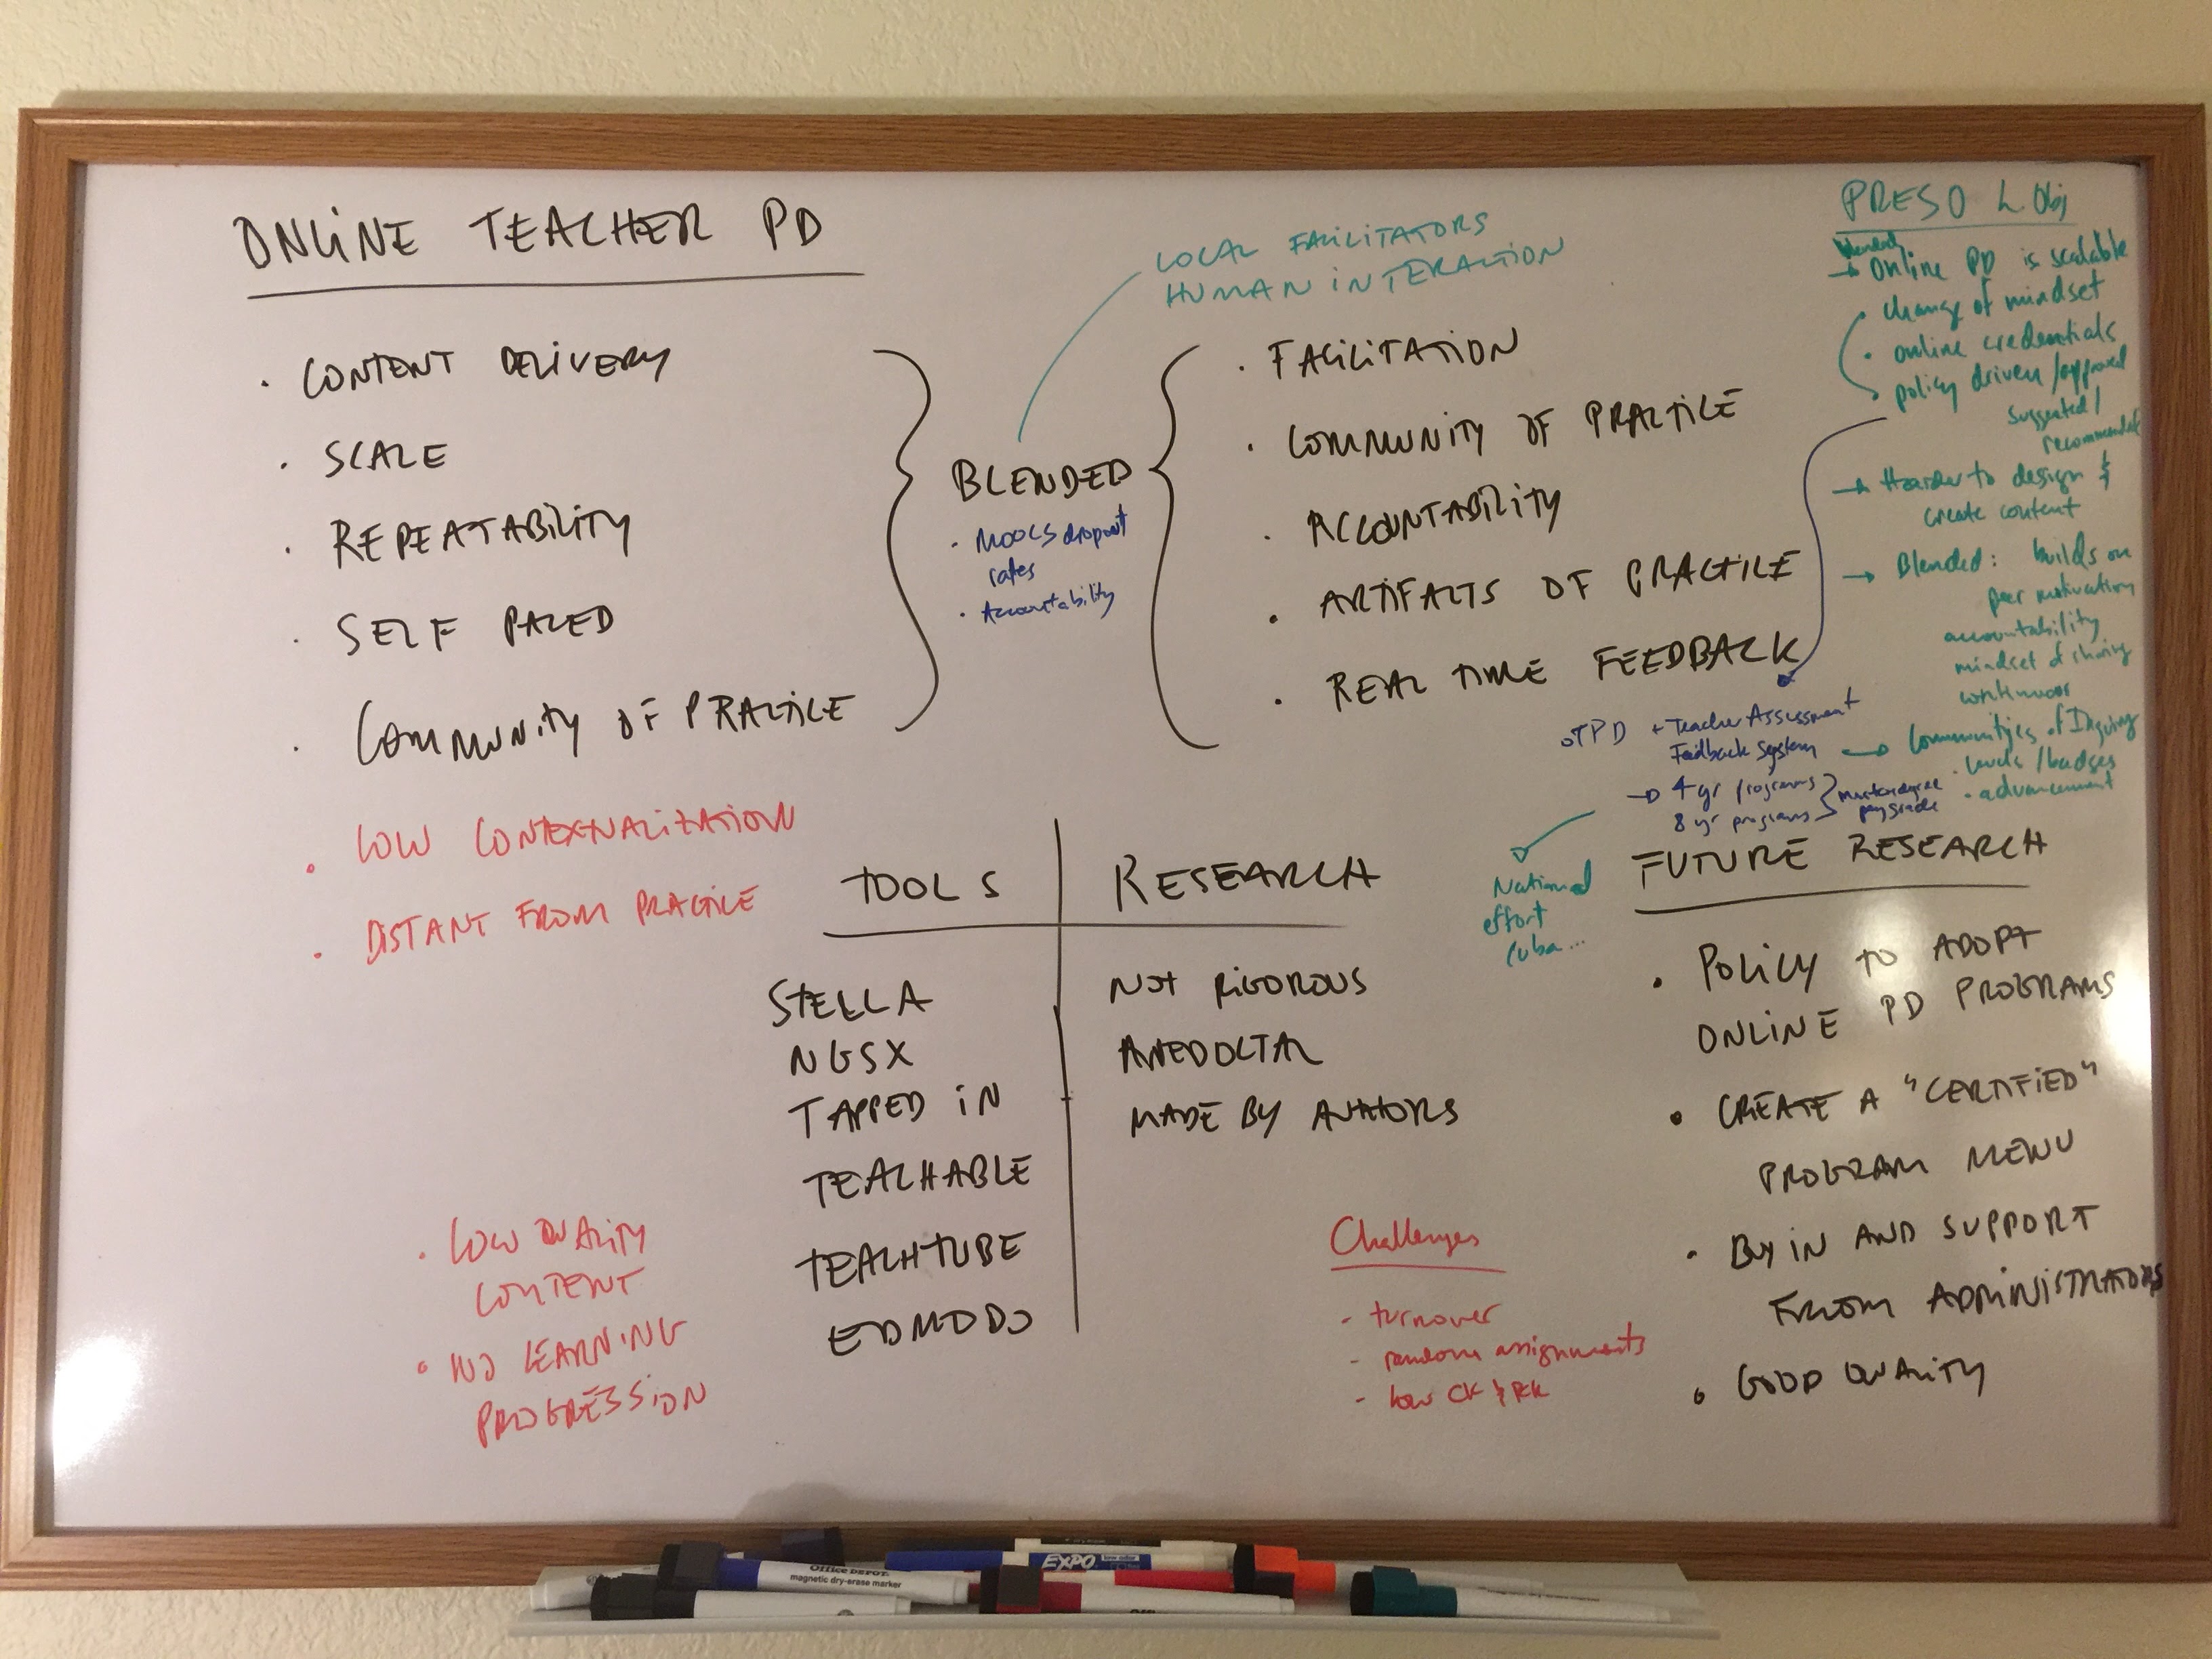 ONLINE TEACHER PD
· CONTENT DELIVERY
· SCALE
· REPEATABILITY
· SELF PACED
· COMMUNITY OF PRACTICE
· LOW CONTEXNALIZATION
· DISTANT FROM PRACTICE
LOCAL FACILITATORS
HUMAN INTERACTION
BLENDED
· MOOCS dropout
rates
· Accountability
· FACILITATION
· COMMUNITY OF PRACTICE
· ACCOUNTABILITY
· ARTIFACTS OF PRACTICE
· REAL TIME FEEDBACK
PRESO L Obj
Blended
→ Online PD is scalable
· change of mindset
· online credentials
· policy driven / approved
suggested /
recommended
→ Harder to design &
create content
→ Blended: builds on
peer motivation
accountability
mindset of sharing
continuous
→ Communities of Inquiry
· levels / badges
· advancement
oTPD + Teacher Assessment
Feedback System
→ 4 yr programs
8 yr programs
paygrade
National
effort
Cuba...
TOOLS
STELLA
NGSX
TAPPED IN
TEACHABLE
TEACHTUBE
EDMODO
RESEARCH
NOT RIGOROUS
ANEDOCTAL
MADE BY AUTHORS
· LOW QUALITY
CONTENT
· NO LEARNING
PROGRESSION
Challenges
- turnover
- random assignments
- low CK & PCK
FUTURE RESEARCH
· POLICY TO ADOPT
ONLINE PD PROGRAMS
· CREATE A "CERTIFIED"
PROGRAM MENU
· BUY IN AND SUPPORT
FROM ADMINISTRATORS
· GOOD QUALITY
EXPO
Office DEPOT
magnetic dry-erase marker